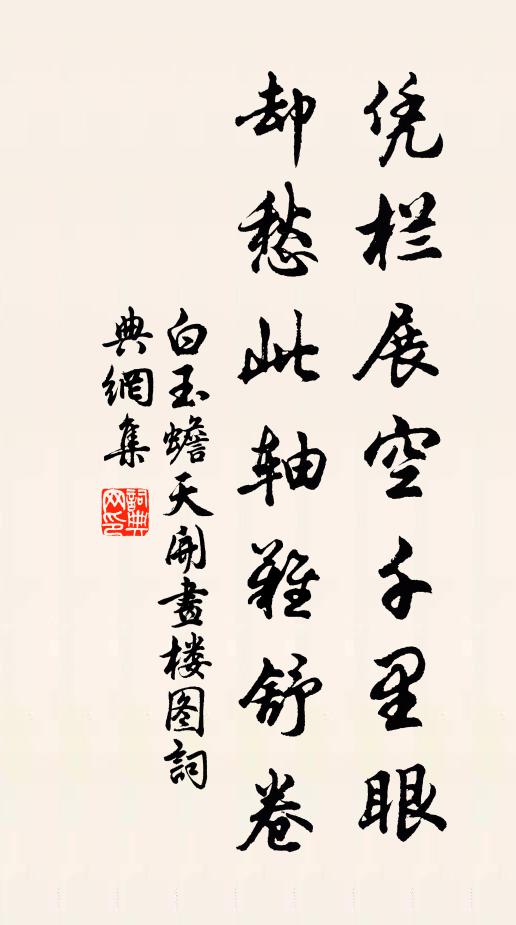 凭栏展空千里眼
却愁此轴难舒卷
白玉蟾天開畫楼图詞
典網集
詞典网印